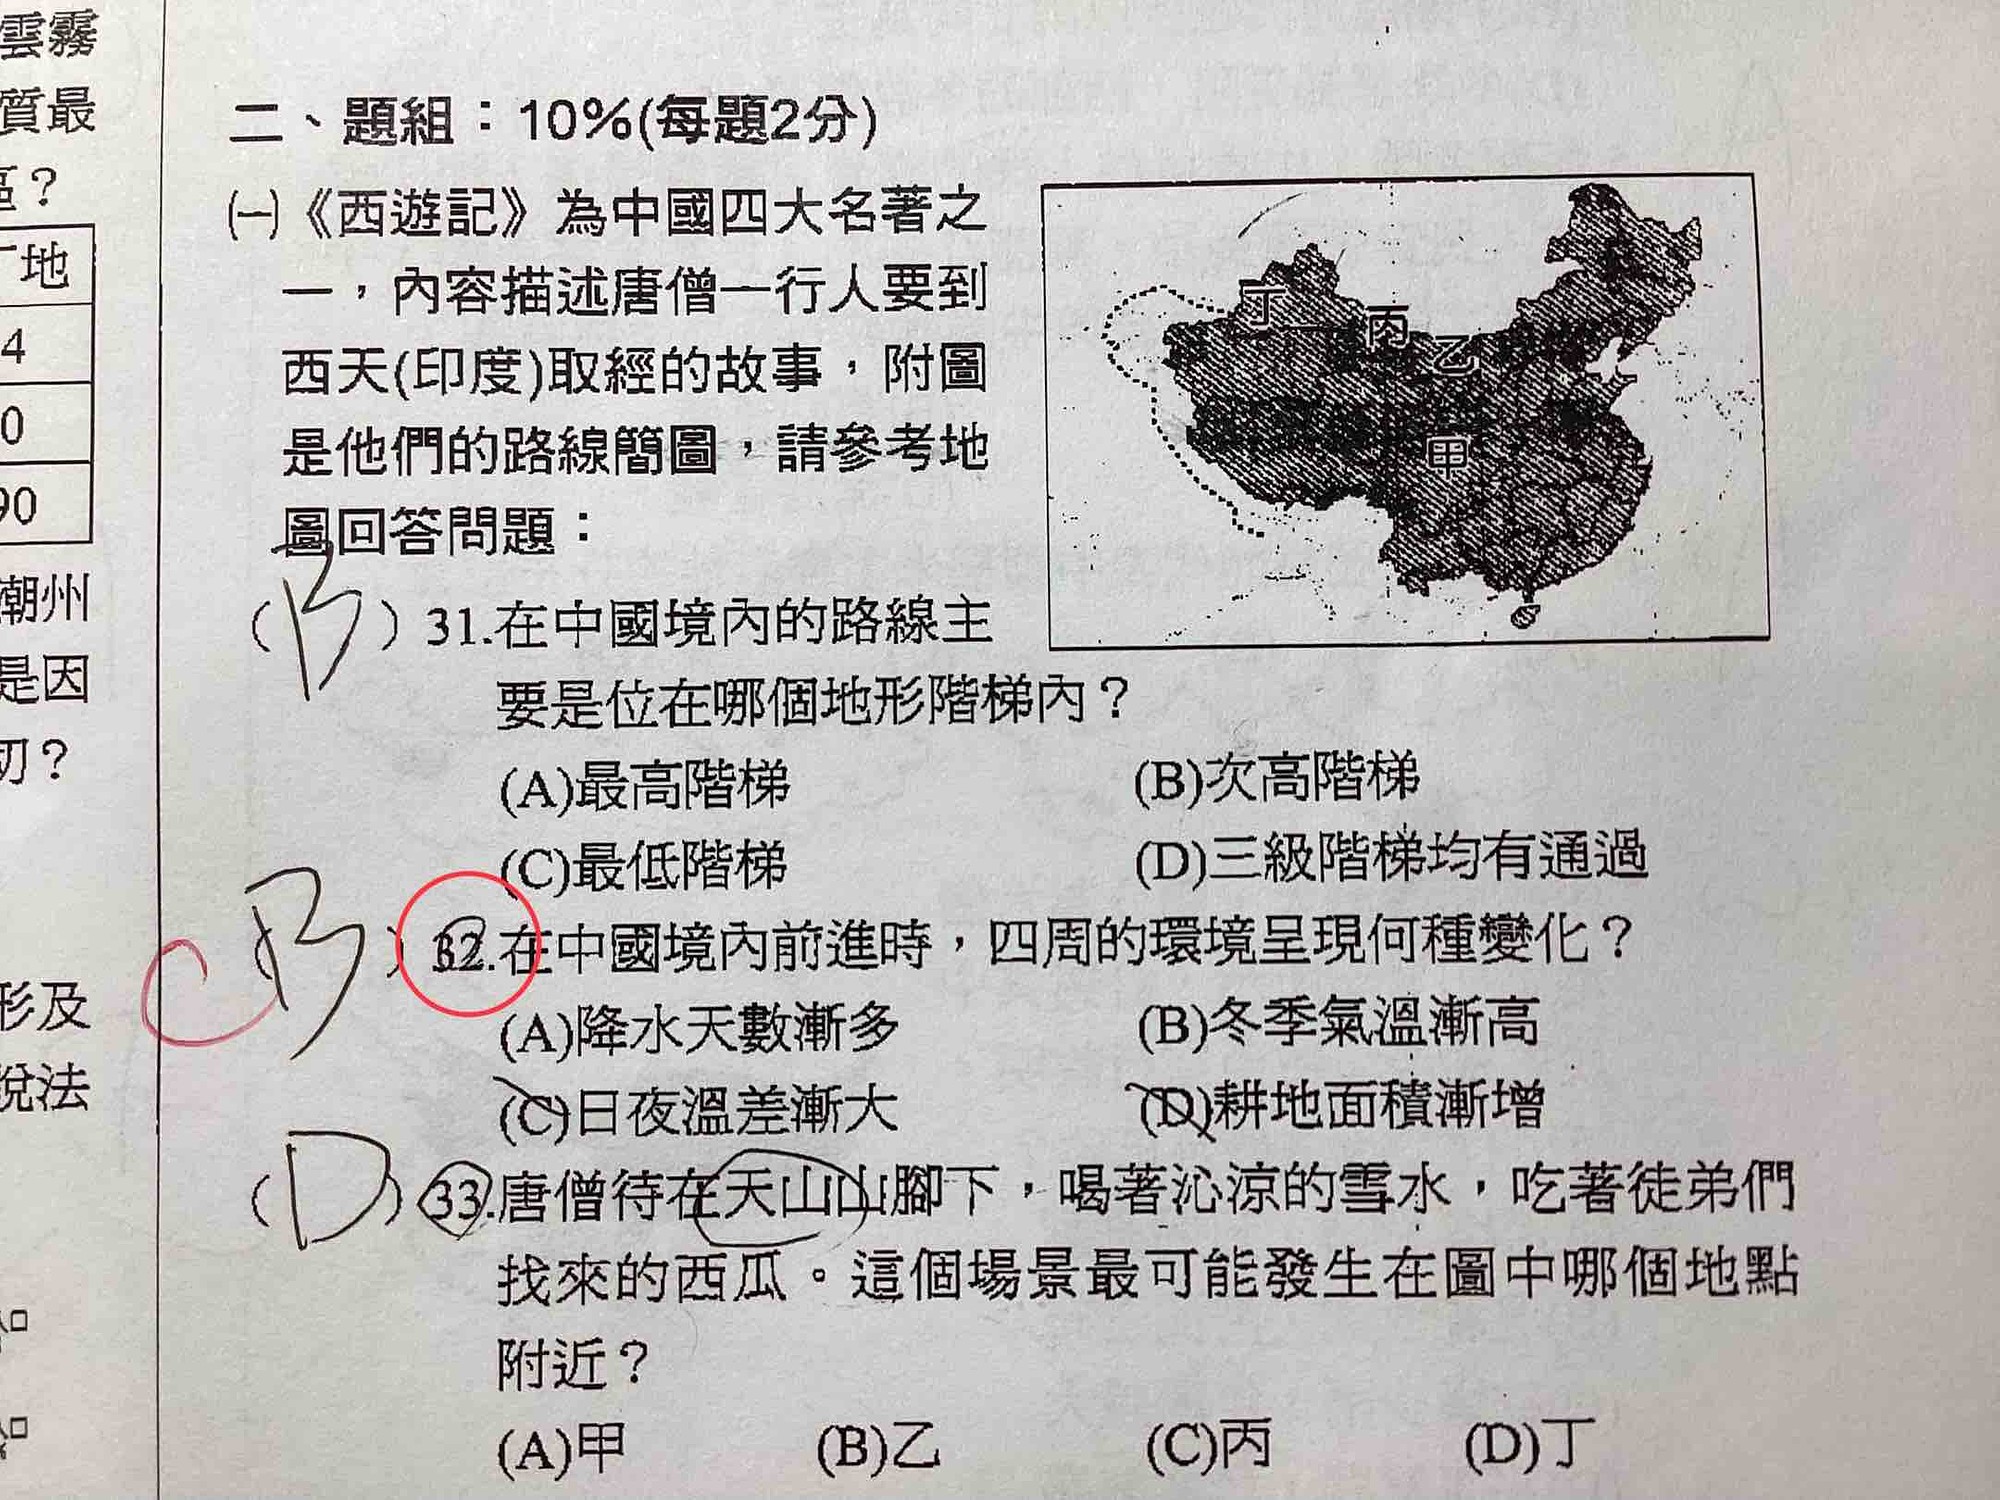 雲霧
質最
區？
丁地
4
0
90
潮州
是因
切？
形及
說法
二、題組：10%(每題2分)
㈠《西遊記》為中國四大名著之
一，內容描述唐僧一行人要到
西天(印度)取經的故事，附圖
是他們的路線簡圖，請參考地
圖回答問題：
丁
丙
乙
甲
(B) 31.在中國境內的路線主
要是位在哪個地形階梯內？
(A)最高階梯 (B)次高階梯
(C)最低階梯 (D)三級階梯均有通過
C (B) 32.在中國境內前進時，四周的環境呈現何種變化？
(A)降水天數漸多 (B)冬季氣溫漸高
(C)日夜溫差漸大 (D)耕地面積漸增
(D) 33.唐僧待在天山山腳下，喝著沁涼的雪水，吃著徒弟們
找來的西瓜。這個場景最可能發生在圖中哪個地點
附近？
(A)甲 (B)乙 (C)丙 (D)丁